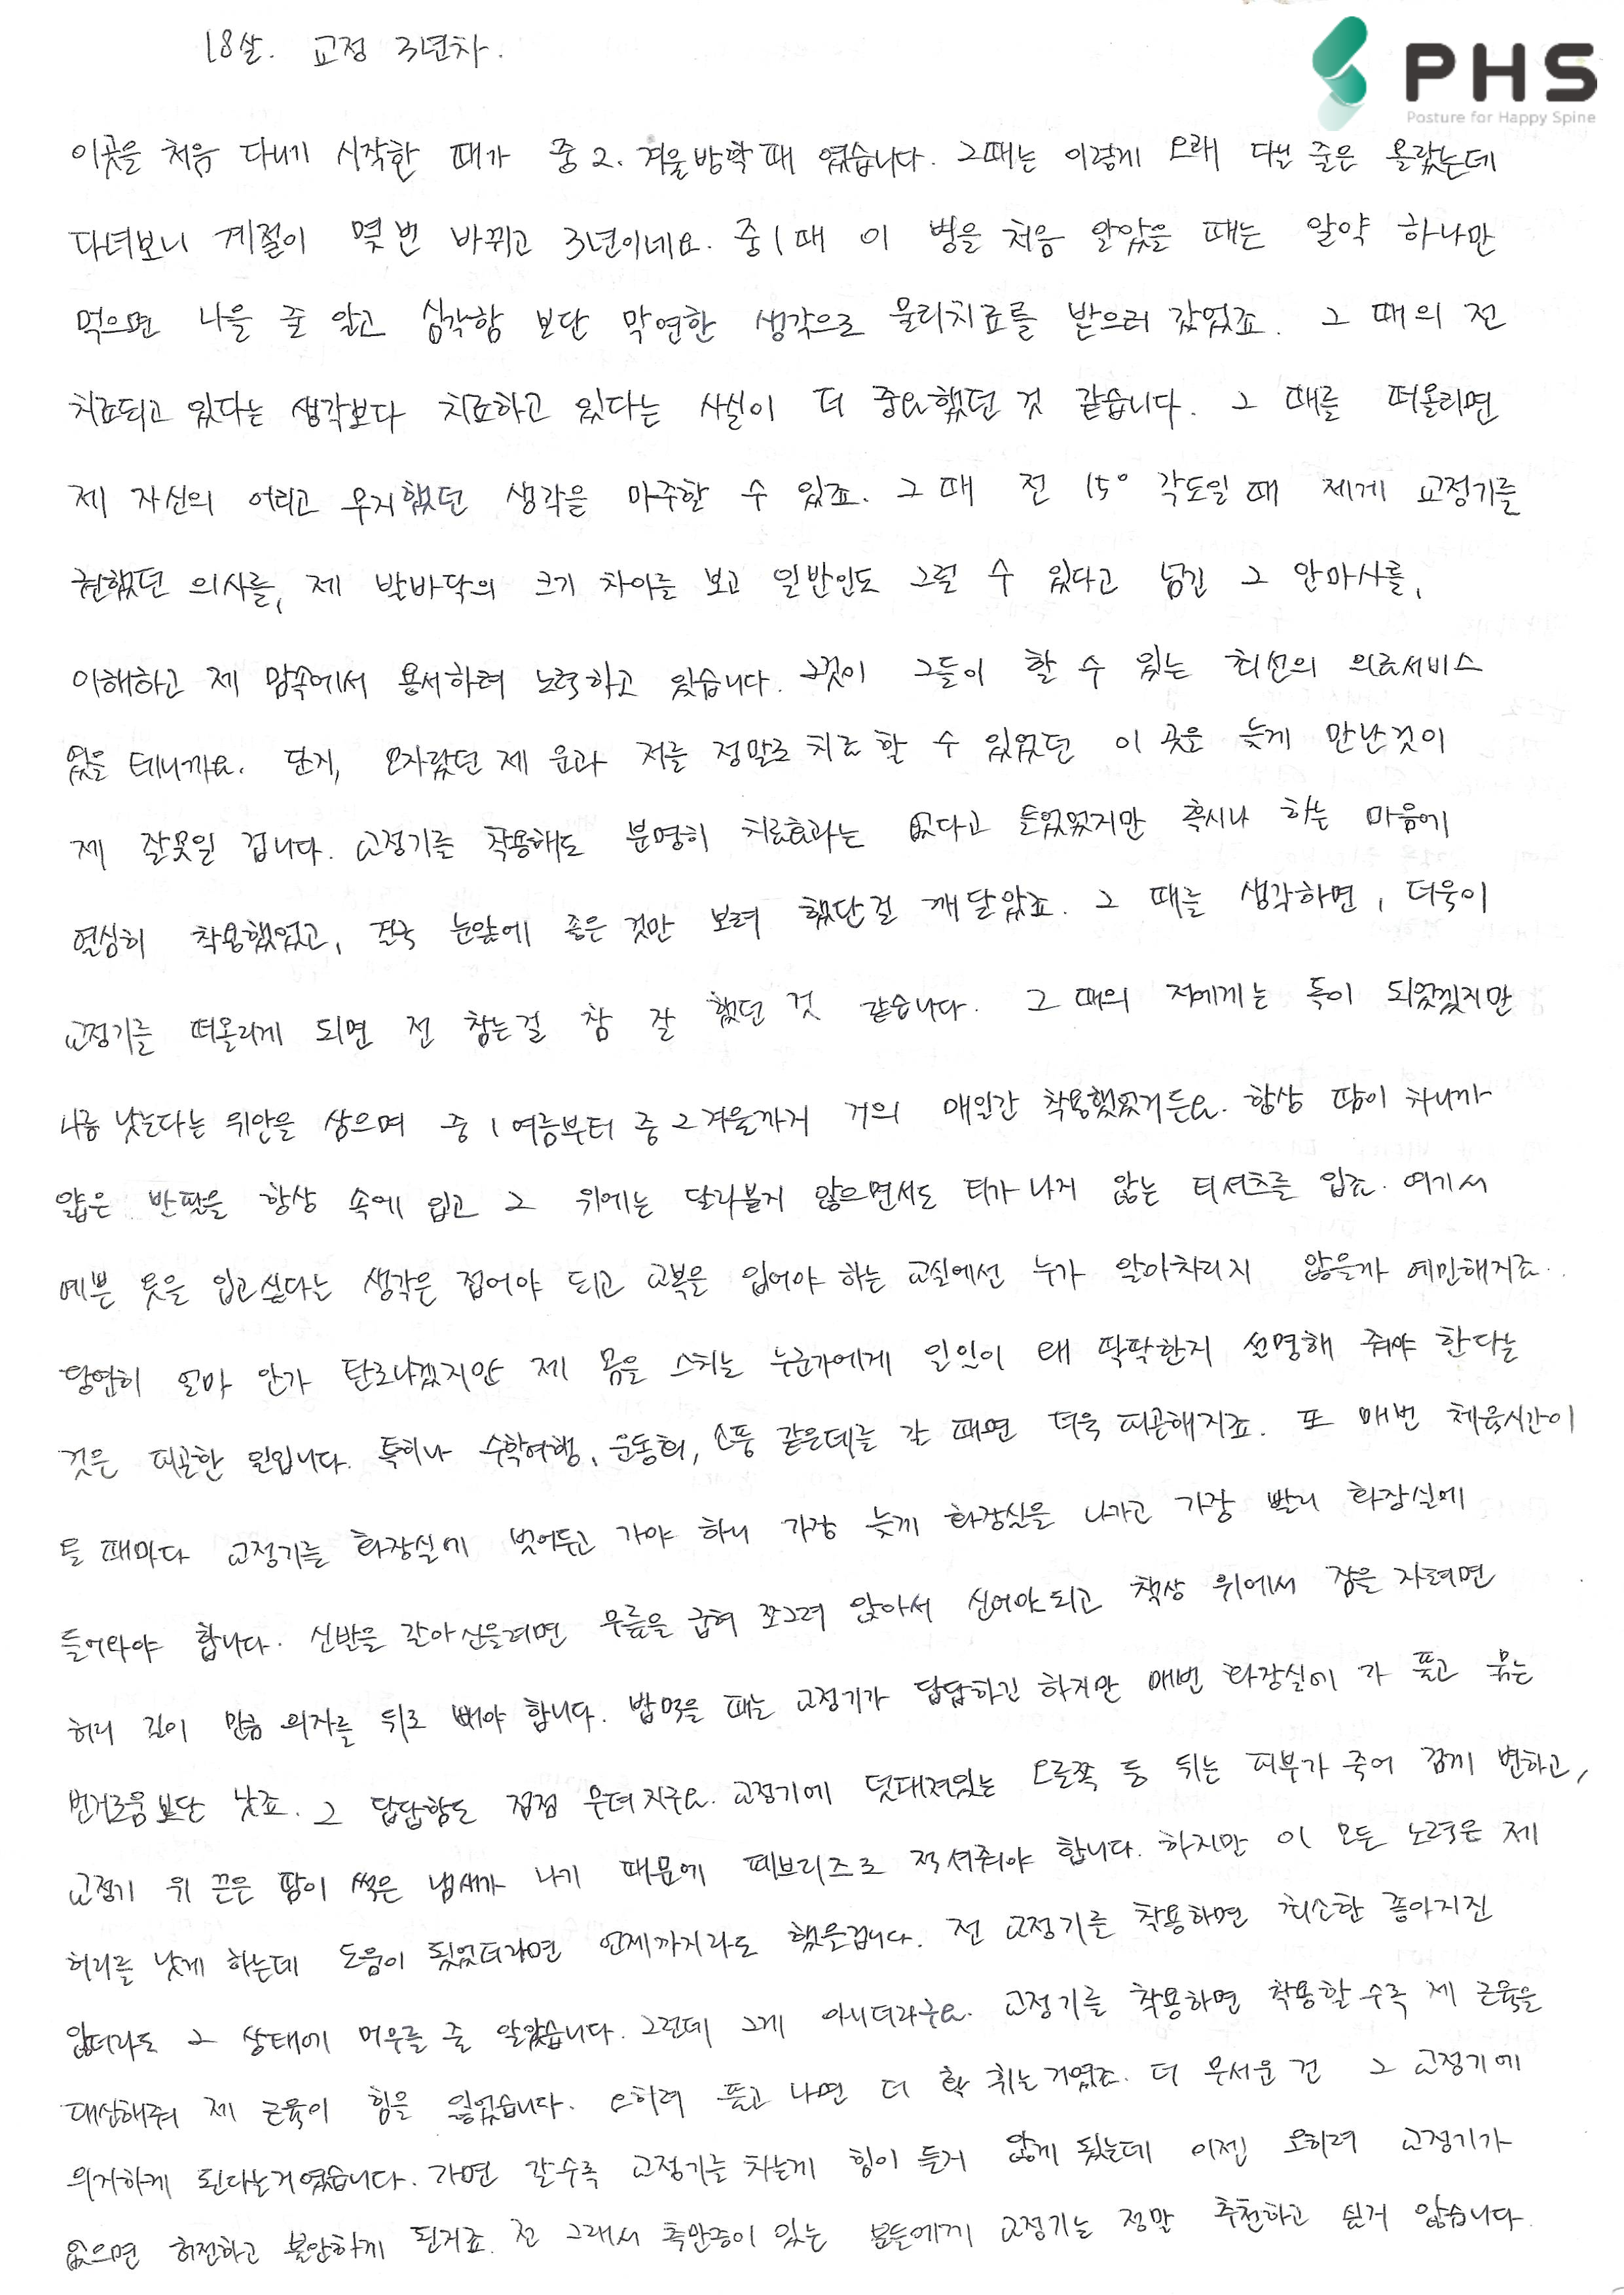 18살. 교정 3년차.
PHS
Posture for Happy Spine
이곳을 처음 다니기 시작한 때가 중2. 겨울방학 때 였습니다. 그때는 이렇게 오래 다닐 줄은 몰랐는데
다녀보니 계절이 몇 번 바뀌고 3년이네요. 중1때 이 병을 처음 알았을 때는 알약 하나만
먹으면 나을 줄 알고 심각함 보단 막연한 생각으로 물리치료를 받으러 갔었죠. 그 때의 전
치료되고 있다는 생각보다 치료하고 있다는 사실이 더 중요했던 것 같습니다. 그 때를 떠올리면
제 자신의 어리고 무지했던 생각을 마주할 수 있죠. 그 때 전 15° 각도일 때 제게 교정기를
권했던 의사를, 제 발바닥의 크기 차이를 보고 일반인도 그럴 수 있다고 넘긴 그 안마사를,
이해하고 제 맘속에서 용서하려 노력하고 있습니다. 그것이 그들이 할 수 있는 최선의 의료서비스
였을 테니까요. 단지, 모자랐던 제 운과 저를 정말로 치료 할 수 있었던 이 곳을 늦게 만난것이
제 잘못일 겁니다. 교정기를 착용해도 분명히 치료효과는 없다고 들었었지만 혹시나 하는 마음에
열심히 착용했었고, 결국 눈앞에 좋은 것만 보려 했단걸 깨달았죠. 그 때를 생각하면, 더욱이
교정기를 떠올리게 되면 전 참는걸 참 잘 했던 것 같습니다. 그 때의 저에게는 독이 되었겠지만
나름 낫는다는 위안을 삼으며 중1여름부터 중2겨울까지 거의 매일간 착용했었거든요. 항상 땀이 차니까
얇은 반팔을 항상 속에 입고 그 위에는 달라붙지 않으면서도 티가 나지 않는 티셔츠를 입죠. 여기서
예쁜 옷을 입고싶다는 생각은 접어야 되고 교복을 입어야 하는 교실에선 누가 알아차리지 않을까 예민해지죠.
당연히 얼마 안가 탄로나겠지만 제 몸을 스치는 누군가에게 일일이 왜 딱딱한지 설명해 줘야 한다는
것은 피곤한 일입니다. 특히나 수학여행, 운동회, 소풍 같은데를 갈 때면 더욱 피곤해지죠. 또 매번 체육시간이
들 때마다 교정기를 화장실에 벗어두고 가야 하니 가장 늦게 화장실을 나가고 가장 빨리 화장실에
들어와야 합니다. 신발을 갈아신을려면 무릎을 굽혀 쪼그려 앉아서 신어야되고 책상 위에서 잠을 자려면
허리 길이 만큼 의자를 뒤로 빼야 합니다. 밥먹을 때는 교정기가 답답하긴 하지만 매번 화장실에 가 풀고 묶는
번거로움보단 낫죠. 그 답답함도 점점 무뎌 지구요. 교정기에 덧대져있는 오른쪽 등 뒤는 피부가 죽어 검게 변하고,
교정기 위 끈은 땀이 썩은 냄새가 나기 때문에 페브리즈로 적셔줘야 합니다. 하지만 이 모든 노력은 제
허리를 낫게 하는데 도움이 됬었더라면 언제까지라도 했을겁니다. 전 교정기를 착용하면 최소한 좋아지진
않더라도 그 상태에 머무를 줄 알았습니다. 그런데 그게 아니더라구요. 교정기를 착용하면 착용할 수록 제 근육을
대신해줘 제 근육이 힘을 잃었습니다. 오히려 풀고 나면 더 확 휘는거였죠. 더 무서운 건 그 교정기에
의지하게 된다는거였습니다. 가면 갈수록 교정기를 차는게 힘이 들지 않게 됬는데 이젠 오히려 교정기가
없으면 허전하고 불안하게 된거죠. 전 그래서 측만증이 있는 분들에게 교정기는 정말 추천하고 싶지 않습니다.